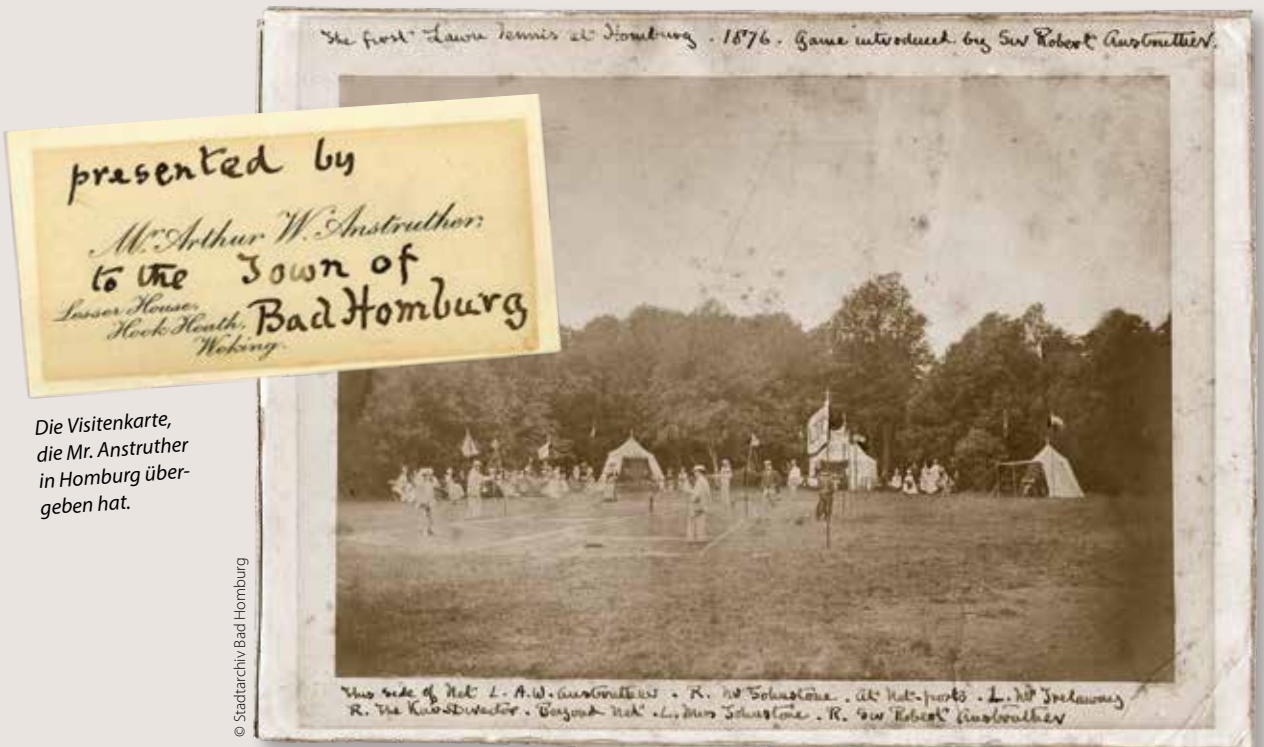 The first Lawn Tennis at Homburg . 1876. Game introduced by Sir Robert Anstruther.
presented by
Mr. Arthur W. Anstruther;
to the Town of
Lesser House,
Hook Heath,
Bad Homburg
Woking.
Die Visitenkarte,
die Mr. Anstruther
in Homburg über-
geben hat.
© Stadtarchiv Bad Homburg
This side of Net L. A.W. Anstruther . R. Mr Johnstone . At Net-posts . L. Mr Trelawny
R. The Kur Director . Beyond Net . L. Miss Johnstone . R. Sir Robert Anstruther